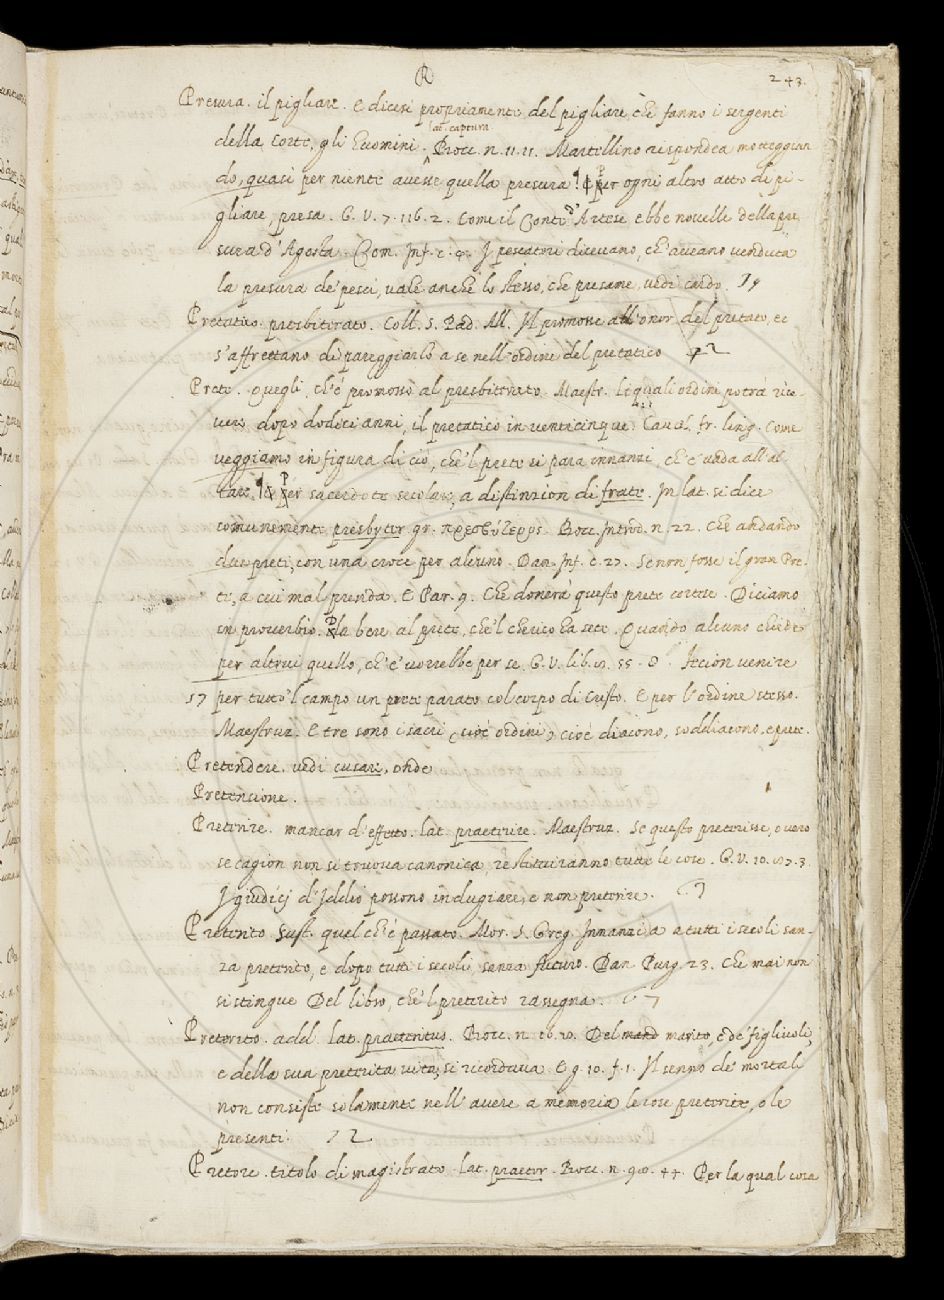 R
243.
Presura. il pigliare. e dicesi propriamente del pigliare, che fanno i sergenti
lat. captura
della corte, gli huomini. Bocc. n. 11. 11. Martellino rispondea motteggian
do, quasi per niente avesse quella presura. ¶ Per ogni altro atto di pi-
gliare, presa. G. V. 7. 116. 2. Come il Conte d'Artese ebbe novelle della pre
sura d'Agosta. Com. Inf. c. I pescatori dicevano, ch'aveano venduta
la presura de' pesci, vale anche lo stesso, che presame, vedi cardo.
Pretatico. presbiterato. Coll. S. Pad. All. Il promosse all'onor del pretato, et
s'affrettano di pareggiarlo a se nell'ordine del pretatico
Prete. quegli, ch'è promosso al presbiterato. Maestr. Li quali ordini potrà rice-
vere dopo dodici anni, il pretatico in venticinque. Caval. fr. ling. Come
veggiamo in figura di ciò, che 'l prete si para innanzi, ch'e' vada all'al
tare, ¶ Per sacerdote secolare, a distinzion di frate. In lat. si dice
comunemente presbyter gr. πρεσβύτερος. Bocc. Introd. n. 22. Che andando
due preti, con una croce per alcuno. Dan. Inf. c. 27. Se non fosse il gran Pre-
te, a cui mal prenda. E Par. 9. Che donerà questo prete cortese. Diciamo
in proverbio. Da bere al prete, che 'l cherico ha sete. Quando alcuno chiede
per altrui quello, ch'e' vorrebbe per se. G. V. lib. 55. 8. Feccion venire
17 per tutto 'l campo un prete parato col corpo di Cristo. E per l'ordine stesso.
Maestruz. E tre sono i sacri (cioè ordini) cioè diacono, soddiacono, e prete.
Pretendere. vedi cusare, onde
Pretensione.
Preterire. mancar d'effetto. lat. praeterire. Maestruz. Se questo preterisse, o vero
se cagion non si truova canonica, restituiranno tutte le cose. G. V. 10. 3.
I giudicj d'Iddio possono indugiare, e non preterire.
Preterito Sust. quel ch'è passato. Mor. S. Greg. Innanzi a a tutti i secoli san-
za preterito, e dopo tutti i secoli sanza futuro. Dan. Purg. 23. Che mai non
si stingue Del libro, che 'l preterito rassegna.
Preterito. add. lat. praeteritus. Bocc. n. 16. Del marito, e de' figliuoli,
e della sua preterita vita, si ricordava. E g. 10. f. 1. Il senno de' mortali
non consiste solamente nell'avere a memoria le cose preterite, o le
presenti.
Pretore. titolo di magistrato. lat. praetor. Bocc. n. 98. 44. Per la qual cosa